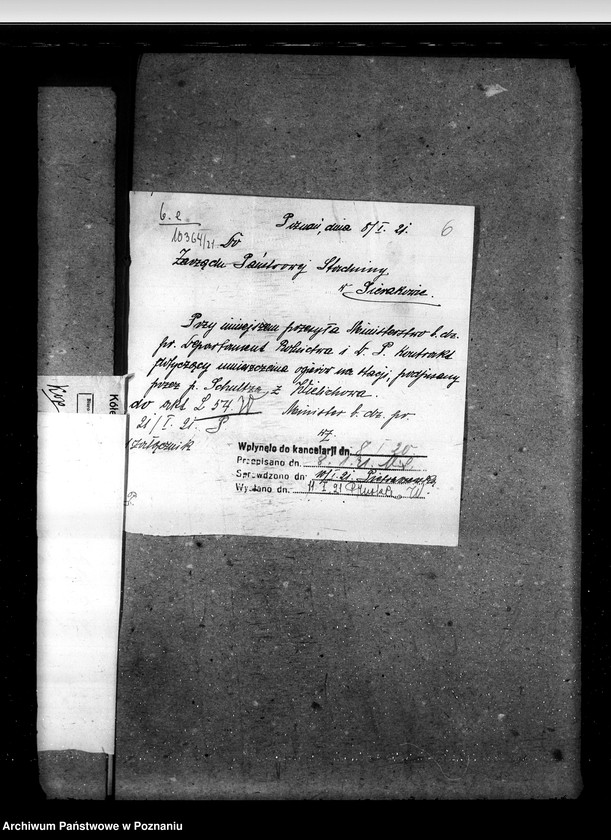 6.e
10364/21
Poznań, dnia 8/I. 21.
6
Do
Zarządu Państwowej Stadniny
w Sierakowie.
Przy niniejszem przesyła Ministerstwo b. dz.
pr. Departament Rolnictwa i D. P. kontrakt
dotyczący umieszczenia ogierów na stacji, podpisany
przez p. Schultza z Wielichowa.
do akt L 54 W
Minister b. dz. pr.
21/I. 21. S
1 załącznik
Wpłynęło do kancelarji dn.
Przepisano dn.
Sprawdzono dn. 11/I. 21.
Wysłano dn. 11 I. 21
Archiwum Państwowe w Poznaniu